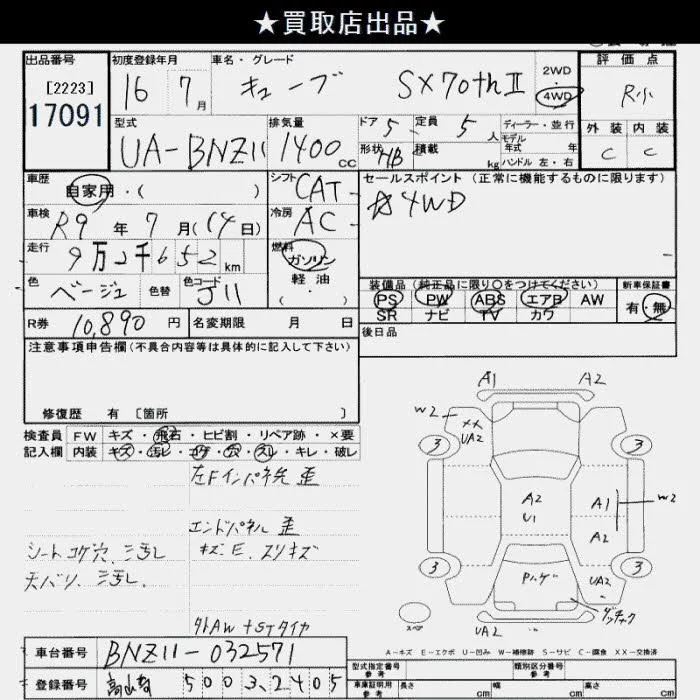 ★買取店出品★
出品番号 初度登録年月 車名・グレード 評価点
[2223] 17091 16 7月 キューブ SX70thⅡ 2WD・4WD R小
型式 排気量 ドア 5 定員 5人 ディーラー・並行 外装 内装
UA-BNZ11 1400cc 形状 HB 積載 kg モデル年式 年 C C
ハンドル 左・右
車歴 自家用・( ) シフト CAT- セールスポイント (正常に機能するものに限ります)
車検 R9年7月(14日) 冷房 AC- ☆4WD
走行 9万2千652km 燃料 ガソリン・軽油・( )
色 ベージュ 色替 色コード J11 装備品 (純正品に限り○をつけてください) 新車保証書
PS PW ABS エアB AW 有・無
R券 10,890円 名変期限 月 日 SR ナビ TV カワ
後日品
注意事項申告欄(不具合内容等は具体的に記入して下さい)
修復歴 有 〔箇所 〕
検査員 FW キズ・飛石・ヒビ割・リペア跡・×要
記入欄 内装 キズ・汚レ・コゲ・穴・スレ・キレ・破レ
左Fインパネ先 歪
エンドパネル 歪
シートコゲ穴、汚レ キズE、スリキズ
天バリ、汚レ、
外AW+STタイヤ
A1 A2
W2 XX UA2
3 3
A2 U1 A1 W2
A2
3 Pハゲ UA2 3
ダッチャク
スペア UA2
A-キズ E-エクボ U-凹み W-補修跡 S-サビ C-腐食 XX-交換済
車台番号 BNZ11-032571 型式指定番号 参考 類別区分番号 参考
登録番号 500 3,2405 車庫証明用 参考 長さ cm 幅 cm 高さ cm